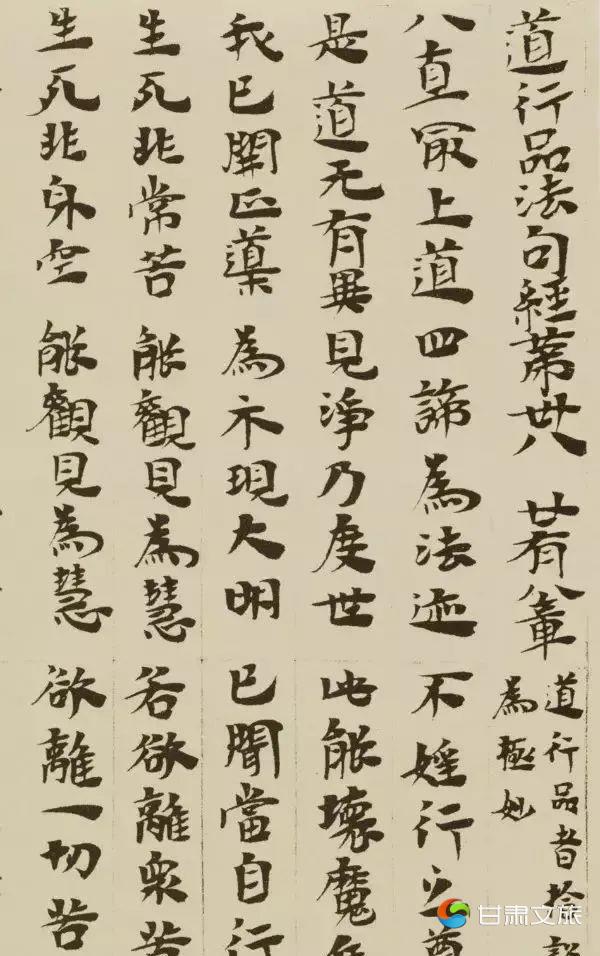 道行品法句經苐丗八 廿有八章
道行品者
為極妙
八直冣上道四諦為法迹不婬行之尊
是道无有異見淨乃度世此能壞魔
我已開正道為示現大明已聞當自行
生死非常苦能觀見為慧若欲離衆苦
生死非身空能觀見為慧欲離一切苦
甘肃文旅